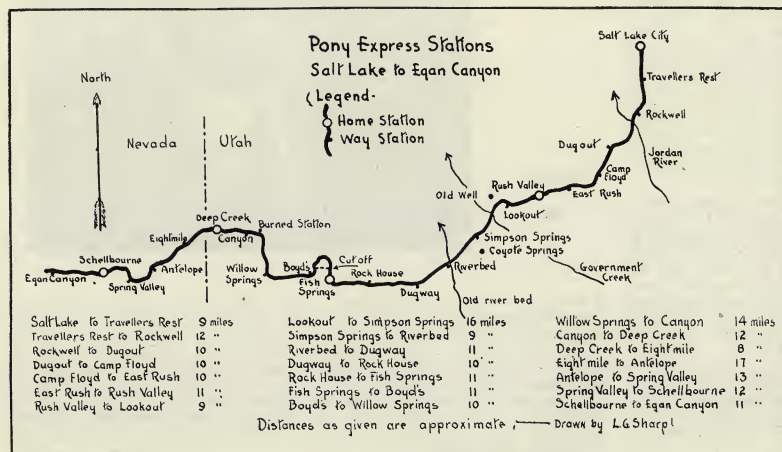 Pony Express Stations
Salt Lake to Egan Canyon
Legend-
Home Station
Way Station
North
Nevada
Utah
Salt Lake City
Travellers Rest
Rockwell
Jordan
River
Dugout
Camp
Floyd
East Rush
Rush Valley
Lookout
Old Well
Simpson Springs
Coyote Springs
Government
Creek
Riverbed
Old river bed
Dugway
Rock House
Cut off
Fish
Springs
Boyd's
Willow
Springs
Burned Station
Canyon
Deep Creek
Eightmile
Antelope
Spring Valley
Schellbourne
Egan Canyon
Salt Lake to Travellers Rest 9 miles
Travellers Rest to Rockwell 12 "
Rockwell to Dugout 10 "
Dugout to Camp Floyd 10 "
Camp Floyd to East Rush 10 "
East Rush to Rush Valley 11 "
Rush Valley to Lookout 9 "
Lookout to Simpson Springs 16 miles
Simpson Springs to Riverbed 9 "
Riverbed to Dugway 11 "
Dugway to Rock House 10 "
Rock House to Fish Springs 11 "
Fish Springs to Boyd's 11 "
Boyd's to Willow Springs 10 "
Willow Springs to Canyon 14 miles
Canyon to Deep Creek 12 "
Deep Creek to Eightmile 8 "
Eight mile to Antelope 17 "
Antelope to Spring Valley 13 "
Spring Valley to Schellbourne 12 "
Schellbourne to Egan Canyon 11 "
Distances as given are approximate, — Drawn by L.G. Sharp